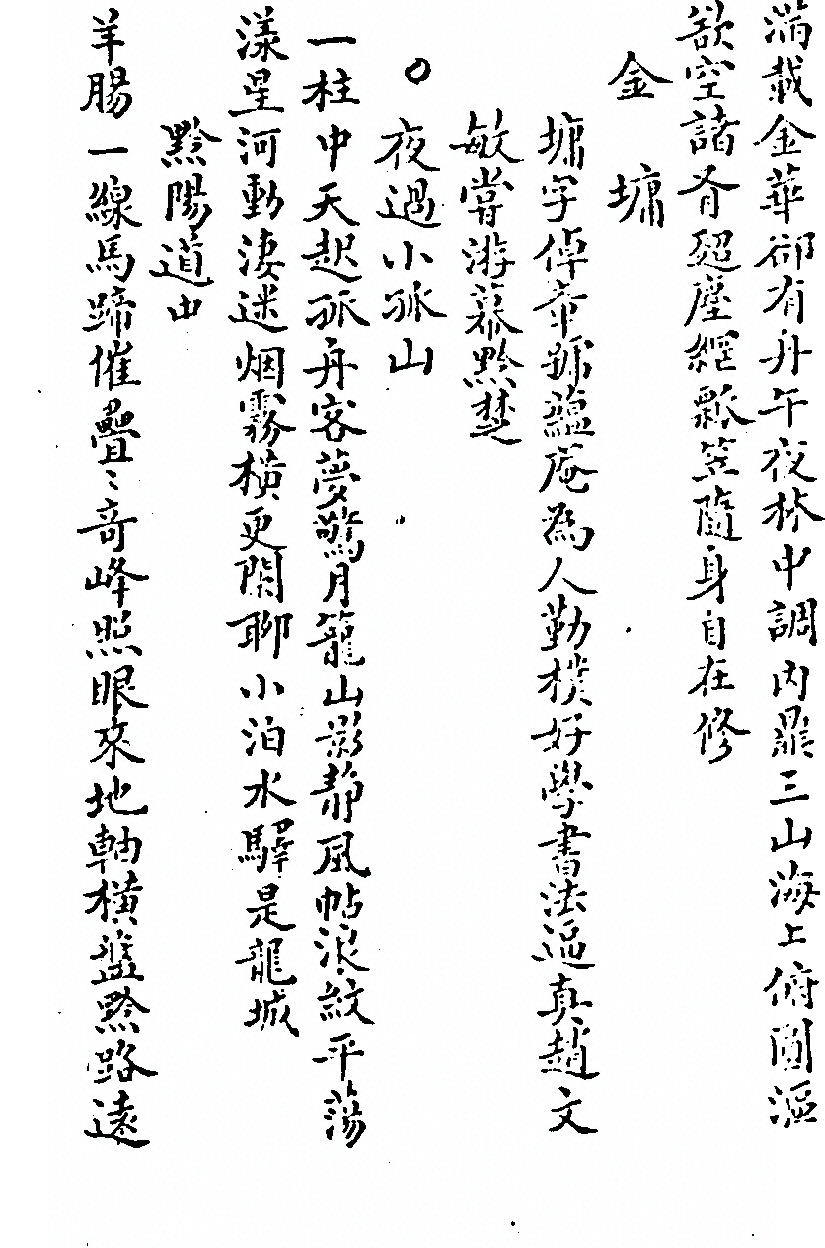 滿載金華卻有舟午夜林中調內鼎三山海上俯圓漚
欲空諸有超塵網瓢笠隨身自在修
金墉
墉字倬章號蘊菴為人勤樸好學書法逼真趙文
敏嘗游幕黔楚
○夜過小孤山
一柱中天起孤舟客夢驚月籠山影靜風帖浪紋平蕩
漾星河動淒迷烟霧橫更闌聊小泊水驛是龍城
黔陽道中
羊腸一線馬蹄催疊〻奇峰照眼來地軸橫盤黔路遠